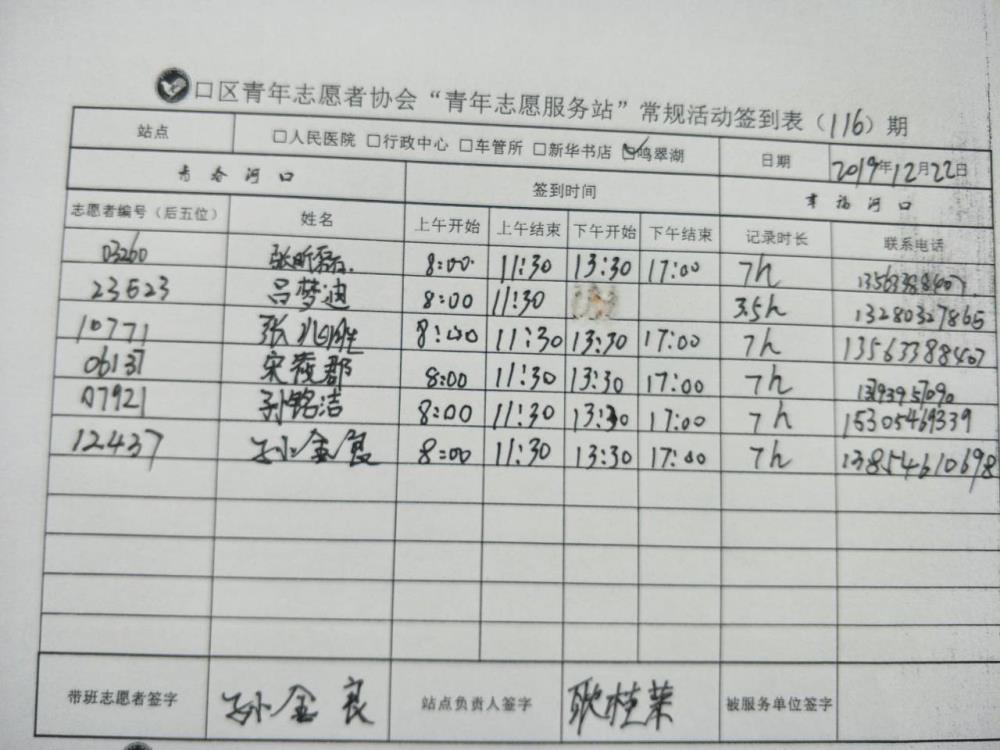 口区青年志愿者协会“青年志愿服务站”常规活动签到表（116）期
站点 □人民医院 □行政中心 □车管所 □新华书店 ☑鸣翠湖 日期 2019年12月22日
青春河口 签到时间 幸福河口
志愿者编号（后五位） 姓名 上午开始 上午结束 下午开始 下午结束 记录时长 联系电话
03260 张昕 8:00 11:30 13:30 17:00 7h 13563388407
23623 吕梦迪 8:00 11:30 3.5h 13280327865
10771 张 8:00 11:30 13:30 17:00 7h 13563388407
06137 宋 郡 8:00 11:30 13:30 17:00 7h
07921 孙铭洁 8:00 11:30 13:30 17:00 7h 15305469339
12437 孙金良 8:00 11:30 13:30 17:00 7h 13854610698
带班志愿者签字 孙金良 站点负责人签字 耿桂荣 被服务单位签字